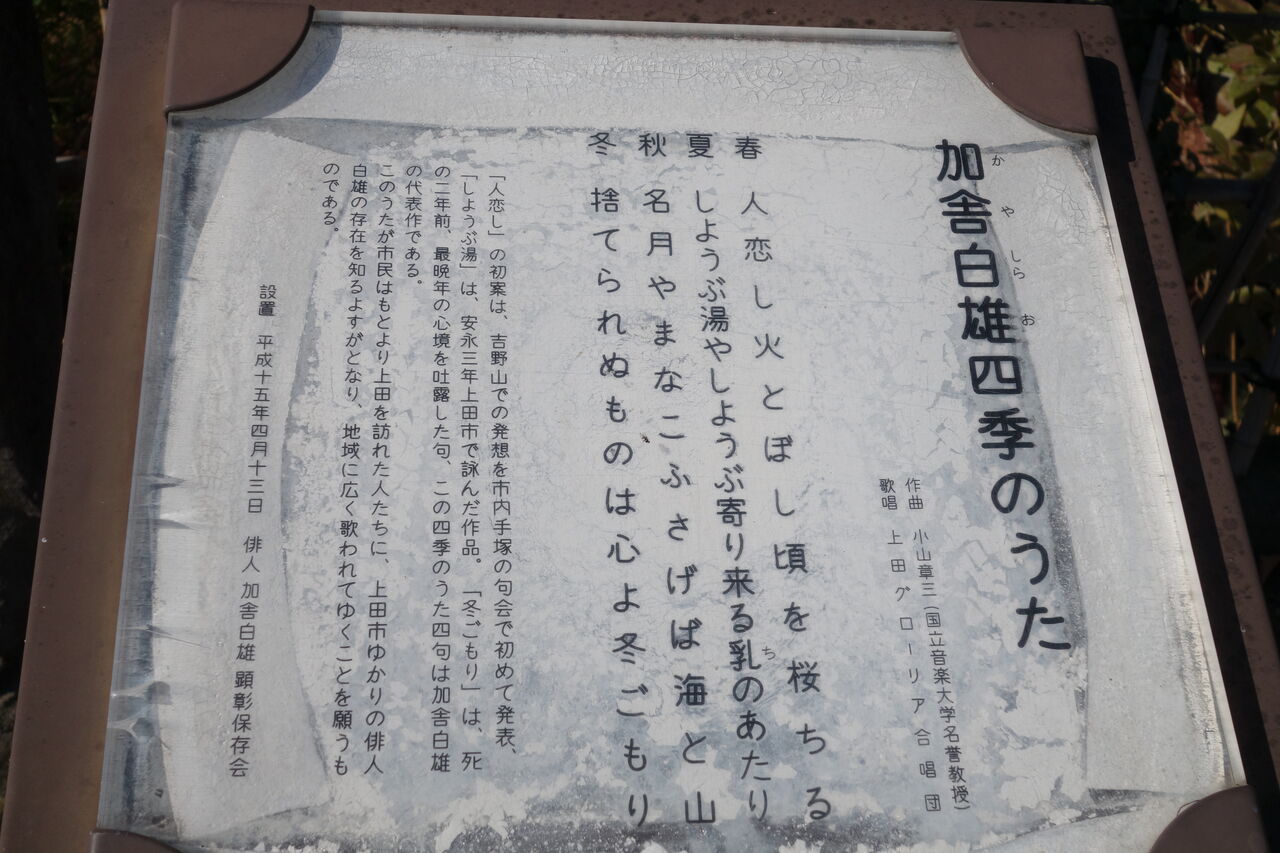 加舎白雄四季のうた
か や しら お
作曲 小山章三(国立音楽大学名誉教授)
歌唱 上田グローリア合唱団
春 人恋し火とぼし頃を桜ちる
夏 しようぶ湯やしようぶ寄り来る乳のあたり
ち
秋 名月やまなこふさげば海と山
冬 捨てられぬものは心よ冬ごもり
「人恋し」の初案は、吉野山での発想を市内手塚の句会で初めて発表、
「しようぶ湯」は、安永三年上田市で詠んだ作品。「冬ごもり」は、死
の二年前、最晩年の心境を吐露した句、この四季のうた四句は加舎白雄
の代表作である。
このうたが市民はもとより上田を訪れた人たちに、上田市ゆかりの俳人
白雄の存在を知るよすがとなり、地域に広く歌われてゆくことを願うも
のである。
設置 平成十五年四月十三日 俳人 加舎白雄 顕彰保存会